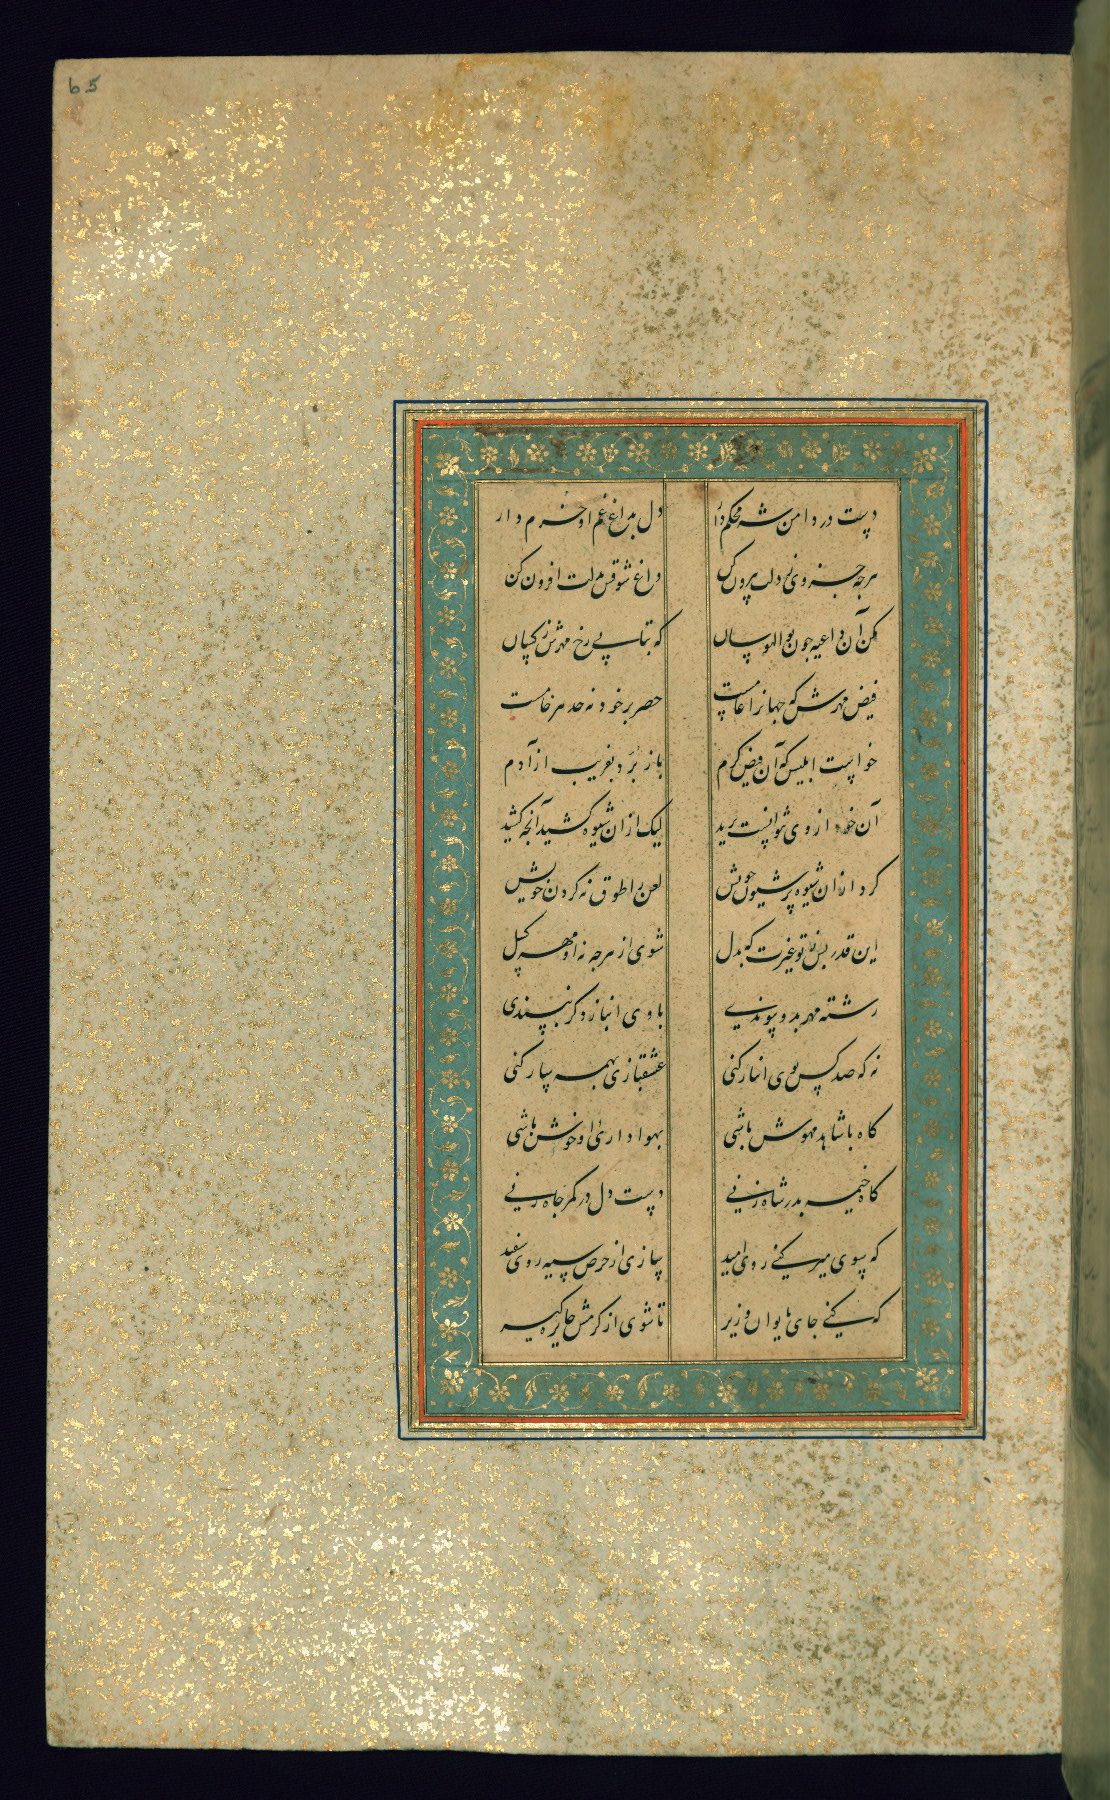 65
دست در دامن شه محکم دار دل بداغ غم او خرم دار
هرچه جز وی ز دلت بیرون کن داغ شوقش بدلت افزون کن
مکن آن داعیه چون بوالهوسان که بتابی رخ مهرش ز کسان
فیض مهرش که جهانرا عامست حصر بر خود نه حد هر خامست
خواست ابلیس که آن فیض کرم باز برد بفریب از آدم
آن خود از وی نتوانست برید لیک از آن شیوه کشید آنچه کشید
کرد از آن شیوه پر شیون خویش لعن را طوق نه گردن خویش
این قدر بس ز تو غیرت که بدل شوی از هرچه نه او مهر گسل
رشته مهر بدو پیوندی با وی انباز دگر نپسندی
نه که صد کس بوی انباز کنی عشقبازی بهمه ساز کنی
گاه با شاهد مهوش باشی بهواداری او خوش باشی
گاه خیمه بدر شاه زنی دست دل در کمر جاه زنی
گه سوی میر کنی روی امید سازی از حرص سیه روی سفید
گه کنی جای بایوان وزیر تا شوی از کرمش جایزه گیر